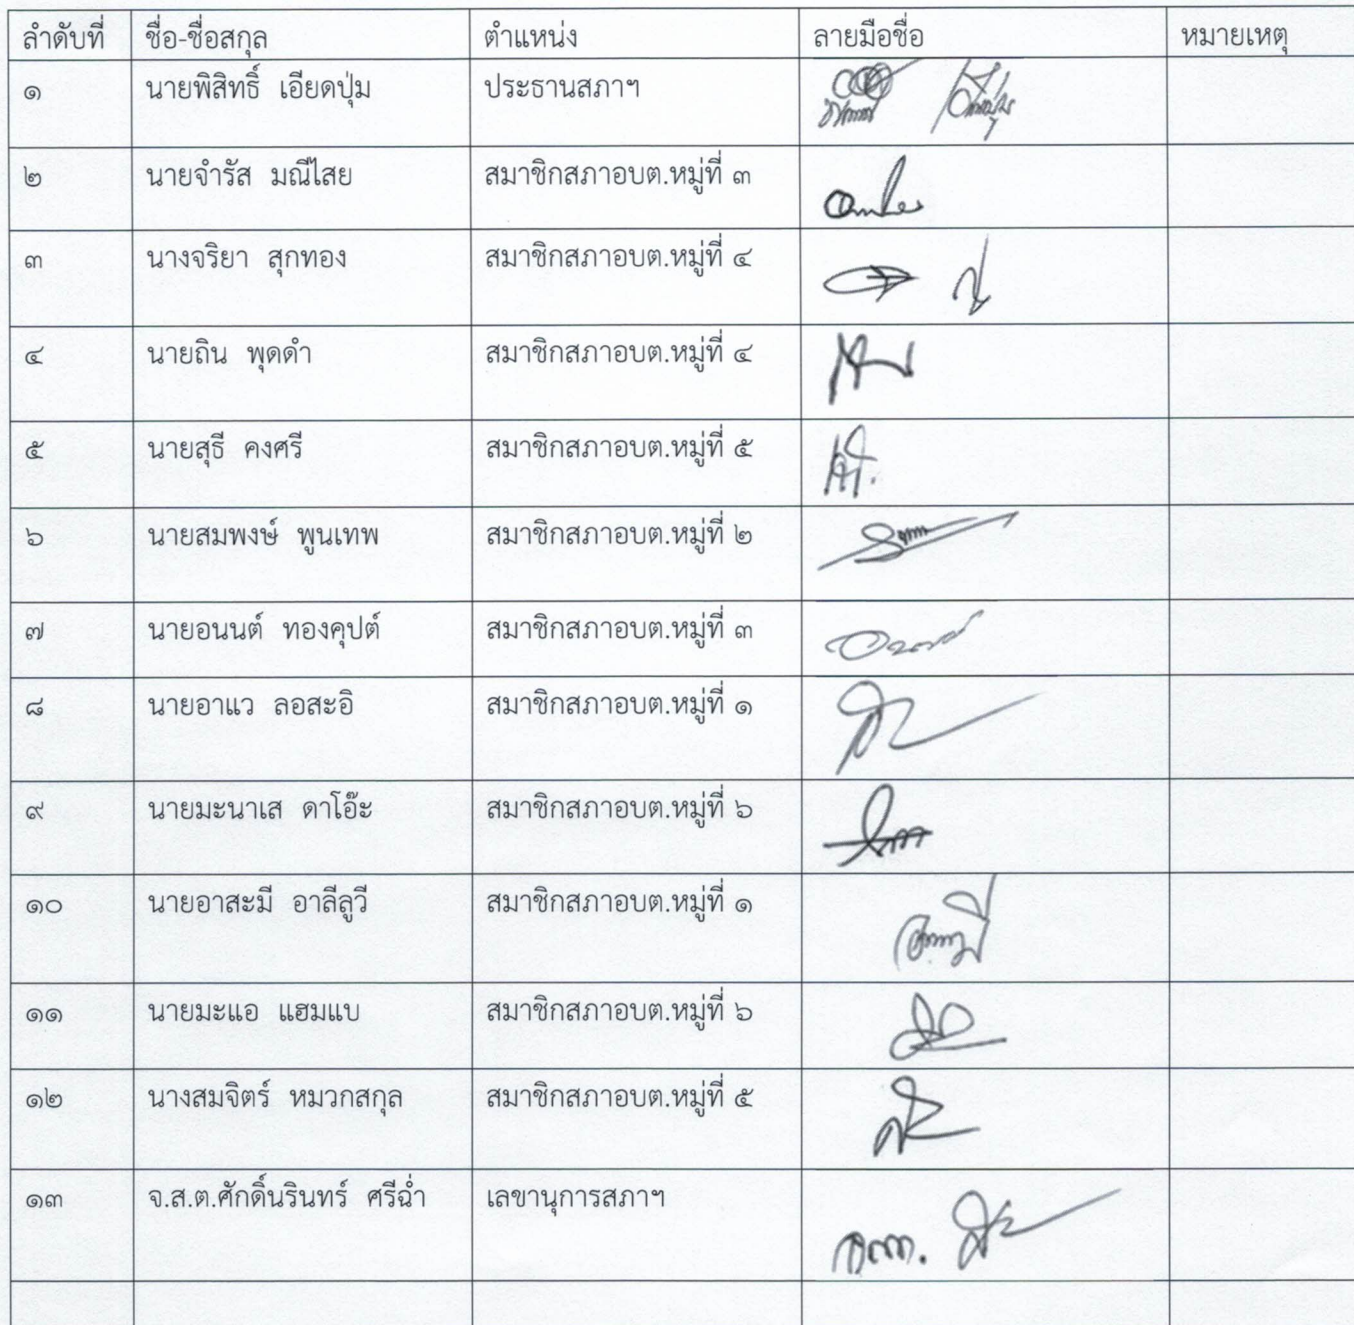 ลำดับที่ ชื่อ-ชื่อสกุล ตำแหน่ง ลายมือชื่อ หมายเหตุ
๑ นายพิสิทธิ์ เอียดปุ่ม ประธานสภาฯ
๒ นายจำรัส มณีไสย สมาชิกสภาอบต.หมู่ที่ ๓
๓ นางจริยา สุกทอง สมาชิกสภาอบต.หมู่ที่ ๔
๔ นายถิน พุดดำ สมาชิกสภาอบต.หมู่ที่ ๔
๕ นายสุธี คงศรี สมาชิกสภาอบต.หมู่ที่ ๕
๖ นายสมพงษ์ พูนเทพ สมาชิกสภาอบต.หมู่ที่ ๒
๗ นายอนนต์ ทองคุปต์ สมาชิกสภาอบต.หมู่ที่ ๓
๘ นายอาแว ลอสะอิ สมาชิกสภาอบต.หมู่ที่ ๑
๙ นายมะนาเส ดาโอ๊ะ สมาชิกสภาอบต.หมู่ที่ ๖
๑๐ นายอาสะมี อาลีลูวี สมาชิกสภาอบต.หมู่ที่ ๑
๑๑ นายมะแอ แฮมแบ สมาชิกสภาอบต.หมู่ที่ ๖
๑๒ นางสมจิตร์ หมวกสกุล สมาชิกสภาอบต.หมู่ที่ ๕
๑๓ จ.ส.ต.ศักดิ์นรินทร์ ศรีฉ่ำ เลขานุการสภาฯ